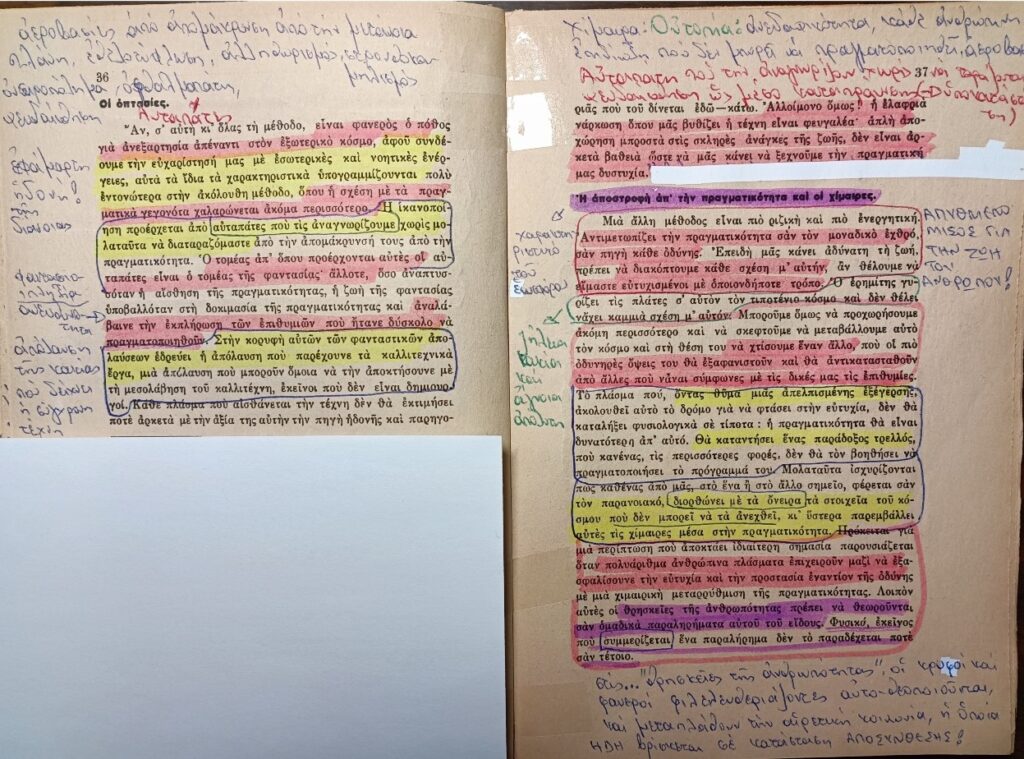 ἀεροβασίες ἀπό ἀπομάκρυνση ἀπό τήν
36
Οἱ ὀπτασίες.
Αὐταπάτες
Ἄν, σ' αὐτὴ κι' ὅλας τὴ μέθοδο, εἶναι φανερὸς ὁ πόθος
γιὰ ἀνεξαρτησία ἀπέναντι στὸν ἐξωτερικὸ κόσμο, ἀφοῦ συνδέ-
ουμε τὴν εὐχαρίστησή μας μὲ ἐσωτερικὲς καὶ νοητικὲς ἐνέρ-
γειες, αὐτὰ τὰ ἴδια τὰ χαρακτηριστικὰ ὑπογραμμίζονται πολὺ
ἐντονώτερα στὴν ἀκόλουθη μέθοδο, ὅπου ἡ σχέση μὲ τὰ πραγ-
ματικὰ γεγονότα χαλαρώνεται ἀκόμα περισσότερο. Ἡ ἱκανοποί-
ηση προέρχεται ἀπὸ αὐταπάτες ποὺ τὶς ἀναγνωρίζουμε χωρὶς
μολαταῦτα νὰ διαταραζόμαστε ἀπὸ τὴν ἀπομάκρυνσή τους ἀπὸ τὴν
πραγματικότητα. Ὁ τομέας ἀπ' ὅπου προέρχονται αὐτὲς οἱ αὐ-
ταπάτες εἶναι ὁ τομέας τῆς φαντασίας· ἄλλοτε, ὅσο ἀναπτυσ-
σόταν ἡ αἴσθηση τῆς πραγματικότητας, ἡ ζωὴ τῆς φαντασίας
ὑποβαλλόταν στὴ δοκιμασία τῆς πραγματικότητας καὶ ἀναλά-
βαινε τὴν ἐκπλήρωση τῶν ἐπιθυμιῶν ποὺ ἤτανε δύσκολο νὰ
πραγματοποιηθοῦν. Στὴν κορυφὴ αὐτῶν τῶν φανταστικῶν ἀπο-
λαύσεων ἑδρεύει ἡ ἀπόλαυση ποὺ παρέχουνε τὰ καλλιτεχνικὰ
ἔργα, μιὰ ἀπόλαυση ποὺ μποροῦν ὅμοια νὰ τὴν ἀποκτήσουνε μὲ
τὴ μεσολάβηση τοῦ καλλιτέχνη, ἐκεῖνοι ποὺ δὲν εἶναι δημιουρ-
γοί. Κάθε πλάσμα ποὺ αἰσθάνεται τὴν τέχνη δὲν θὰ ἐκτιμήσει
ποτὲ ἀρκετὰ μὲ τὴν ἀξία της αὐτὴν τὴν πηγὴ ἡδονῆς καὶ παρηγο-
ἐφαίμαρτη
ἡδονή!
τῆς
διάνοιας
ἀπόλαυση
Χίμαιρα: Οὐτοπία:
37
ριᾶς ποὺ τοῦ δίνεται ἐδῶ—κάτω. Ἀλλοίμονο ὅμως! ἡ ἐλαφριὰ
νάρκωση ὅπου μᾶς βυθίζει ἡ τέχνη εἶναι φευγαλέα· ἁπλὴ ἀπο-
χώρηση μπροστὰ στὶς σκληρὲς ἀνάγκες τῆς ζωῆς, δὲν εἶναι ἀρ-
κετὰ βαθειὰ ὥστε νὰ μᾶς κάνει νὰ ξεχνοῦμε τὴν πραγματική
μας δυστυχία.
Ἡ ἀποστροφὴ ἀπ' τὴν πραγματικότητα καὶ οἱ χίμαιρες.
Μιὰ ἄλλη μέθοδος εἶναι πιὸ ριζικὴ καὶ πιὸ ἐνεργητική.
Ἀντιμετωπίζει τὴν πραγματικότητα σὰν τὸν μοναδικὸ ἐχθρό,
σὰν πηγὴ κάθε ὀδύνης. Ἐπειδὴ μᾶς κάνει ἀδύνατη τὴ ζωή,
πρέπει νὰ διακόπτουμε κάθε σχέση μ' αὐτήν, ἂν θέλουμε νὰ
εἴμαστε εὐτυχισμένοι μὲ ὁποιονδήποτε τρόπο. Ὁ ἐρημίτης γυ-
ρίζει τὶς πλάτες σ' αὐτὸν τὸν τιποτένιο κόσμο καὶ δὲν θέλει
νάχει καμμιὰ σχέση μ' αὐτόν. Μποροῦμε ὅμως νὰ προχωρήσουμε
ἀκόμη περισσότερο καὶ νὰ σκεφτοῦμε νὰ μεταβάλουμε αὐτὸ
τὸν κόσμο καὶ στὴ θέση του νὰ χτίσουμε ἕναν ἄλλο, ποὺ οἱ πιὸ
ὀδυνηρὲς ὄψεις του θὰ ἐξαφανιστοῦν καὶ θὰ ἀντικατασταθοῦν
ἀπὸ ἄλλες ποὺ νἆναι σύμφωνες μὲ τὶς δικές μας τὶς ἐπιθυμίες.
Τὸ πλάσμα πού, ὄντας θῦμα μιᾶς ἀπελπισμένης ἐξέγερσης,
ἀκολουθεῖ αὐτὸ τὸ δρόμο γιὰ νὰ φτάσει στὴν εὐτυχία, δὲν θὰ
καταλήξει φυσιολογικὰ σὲ τίποτα: ἡ πραγματικότητα θὰ εἶναι
δυνατότερη ἀπ' αὐτό. Θὰ καταντήσει ἕνας παράδοξος τρελλός,
ποὺ κανένας, τὶς περισσότερες φορές, δὲν θὰ τὸν βοηθήσει νὰ
πραγματοποιήσει τὸ πρόγραμμά του. Μολαταῦτα ἰσχυρίζονται
πὼς καθένας ἀπὸ μᾶς, στὸ ἕνα ἢ στὸ ἄλλο σημεῖο, φέρεται σὰν
τὸν παρανοιακό, διορθώνει μὲ τὰ ὄνειρα τὰ στοιχεῖα τοῦ κό-
σμου ποὺ δὲν μπορεῖ νὰ τὰ ἀνεχθεῖ, κι' ὕστερα παρεμβάλλει
αὐτὲς τὶς χίμαιρες μέσα στὴν πραγματικότητα. Πρόκειται γιὰ
μιὰ περίπτωση ποὺ ἀποκτάει ἰδιαίτερη σημασία παρουσιάζεται
ὅταν πολυάριθμα ἀνθρώπινα πλάσματα ἐπιχειροῦν μαζὶ νὰ ἐξα-
σφαλίσουνε τὴν εὐτυχία καὶ τὴν προστασία ἐναντίον τῆς ὀδύνης
μὲ μιὰ χιμαιρικὴ μεταρρύθμιση τῆς πραγματικότητας. Λοιπὸν
αὐτὲς οἱ θρησκεῖες τῆς ἀνθρωπότητας πρέπει νὰ θεωροῦνται
σὰν ὁμαδικὰ παραληρήματα αὐτοῦ τοῦ εἴδους. Φυσικά, ἐκεῖνος
ποὺ συμμερίζεται ἕνα παραλήρημα δὲν τὸ παραδέχεται ποτὲ
σὰν τέτοιο.
ΑΠΥΘΜΕΝΟ
ΜΙΣΟΣ ΓΙΑ
ΤΗΝ ΖΩΗ
ΤΟΝ
ΑΝΘΡΩΠΟΥ!
στίς... "θρησκεῖες τῆς ἀνθρωπότητας", οἱ κρυφοί καί
φανεροί φιλελευθεριάζοντες αὐτο-θεοποιοῦνται,
καί μεταπλάθουν τήν αἱρετική κοινωνία, ἡ ὁποία
ΗΔΗ βρίσκεται σέ κατάσταση ΑΠΟΣΥΝΘΕΣΗΣ!